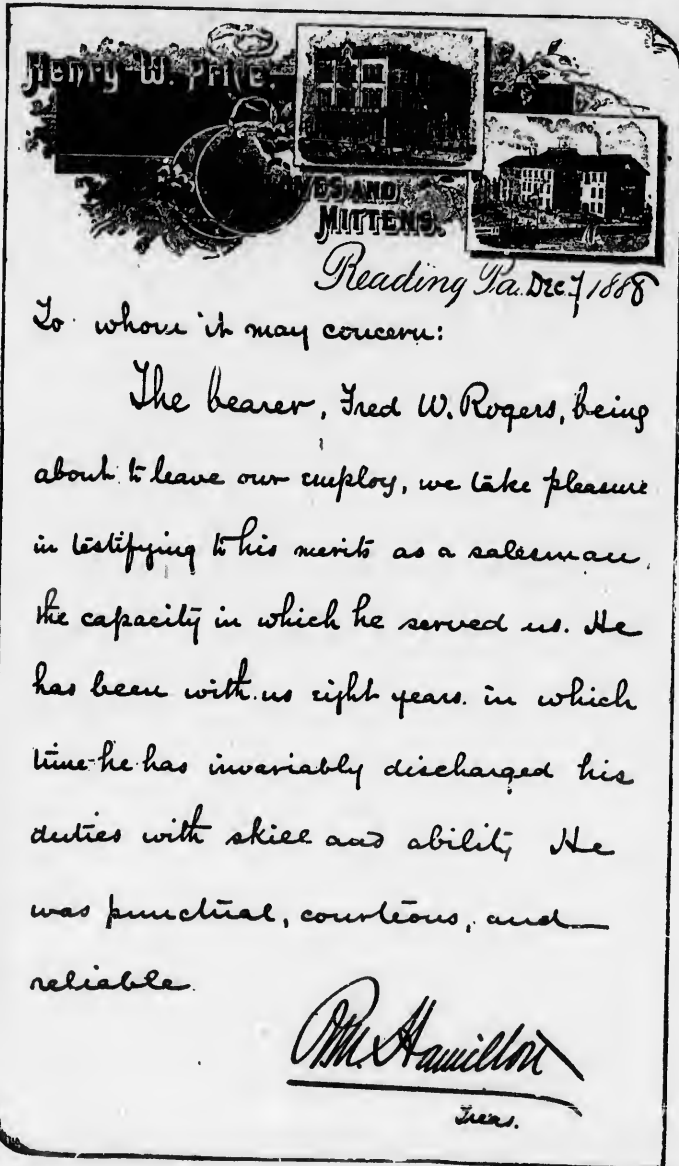 Henry W. Price.
AND
MITTENS.
Reading Pa. Dec. 7 1888
To whom it may concern:
The bearer, Fred W. Rogers, being
about to leave our employ, we take pleasure
in testifying to his merits as a salesman,
the capacity in which he served us. He
has been with us eight years. in which
time he has invariably discharged his
duties with skill and ability He
was punctual, courteous, and
reliable.
Hamilton
Treas.